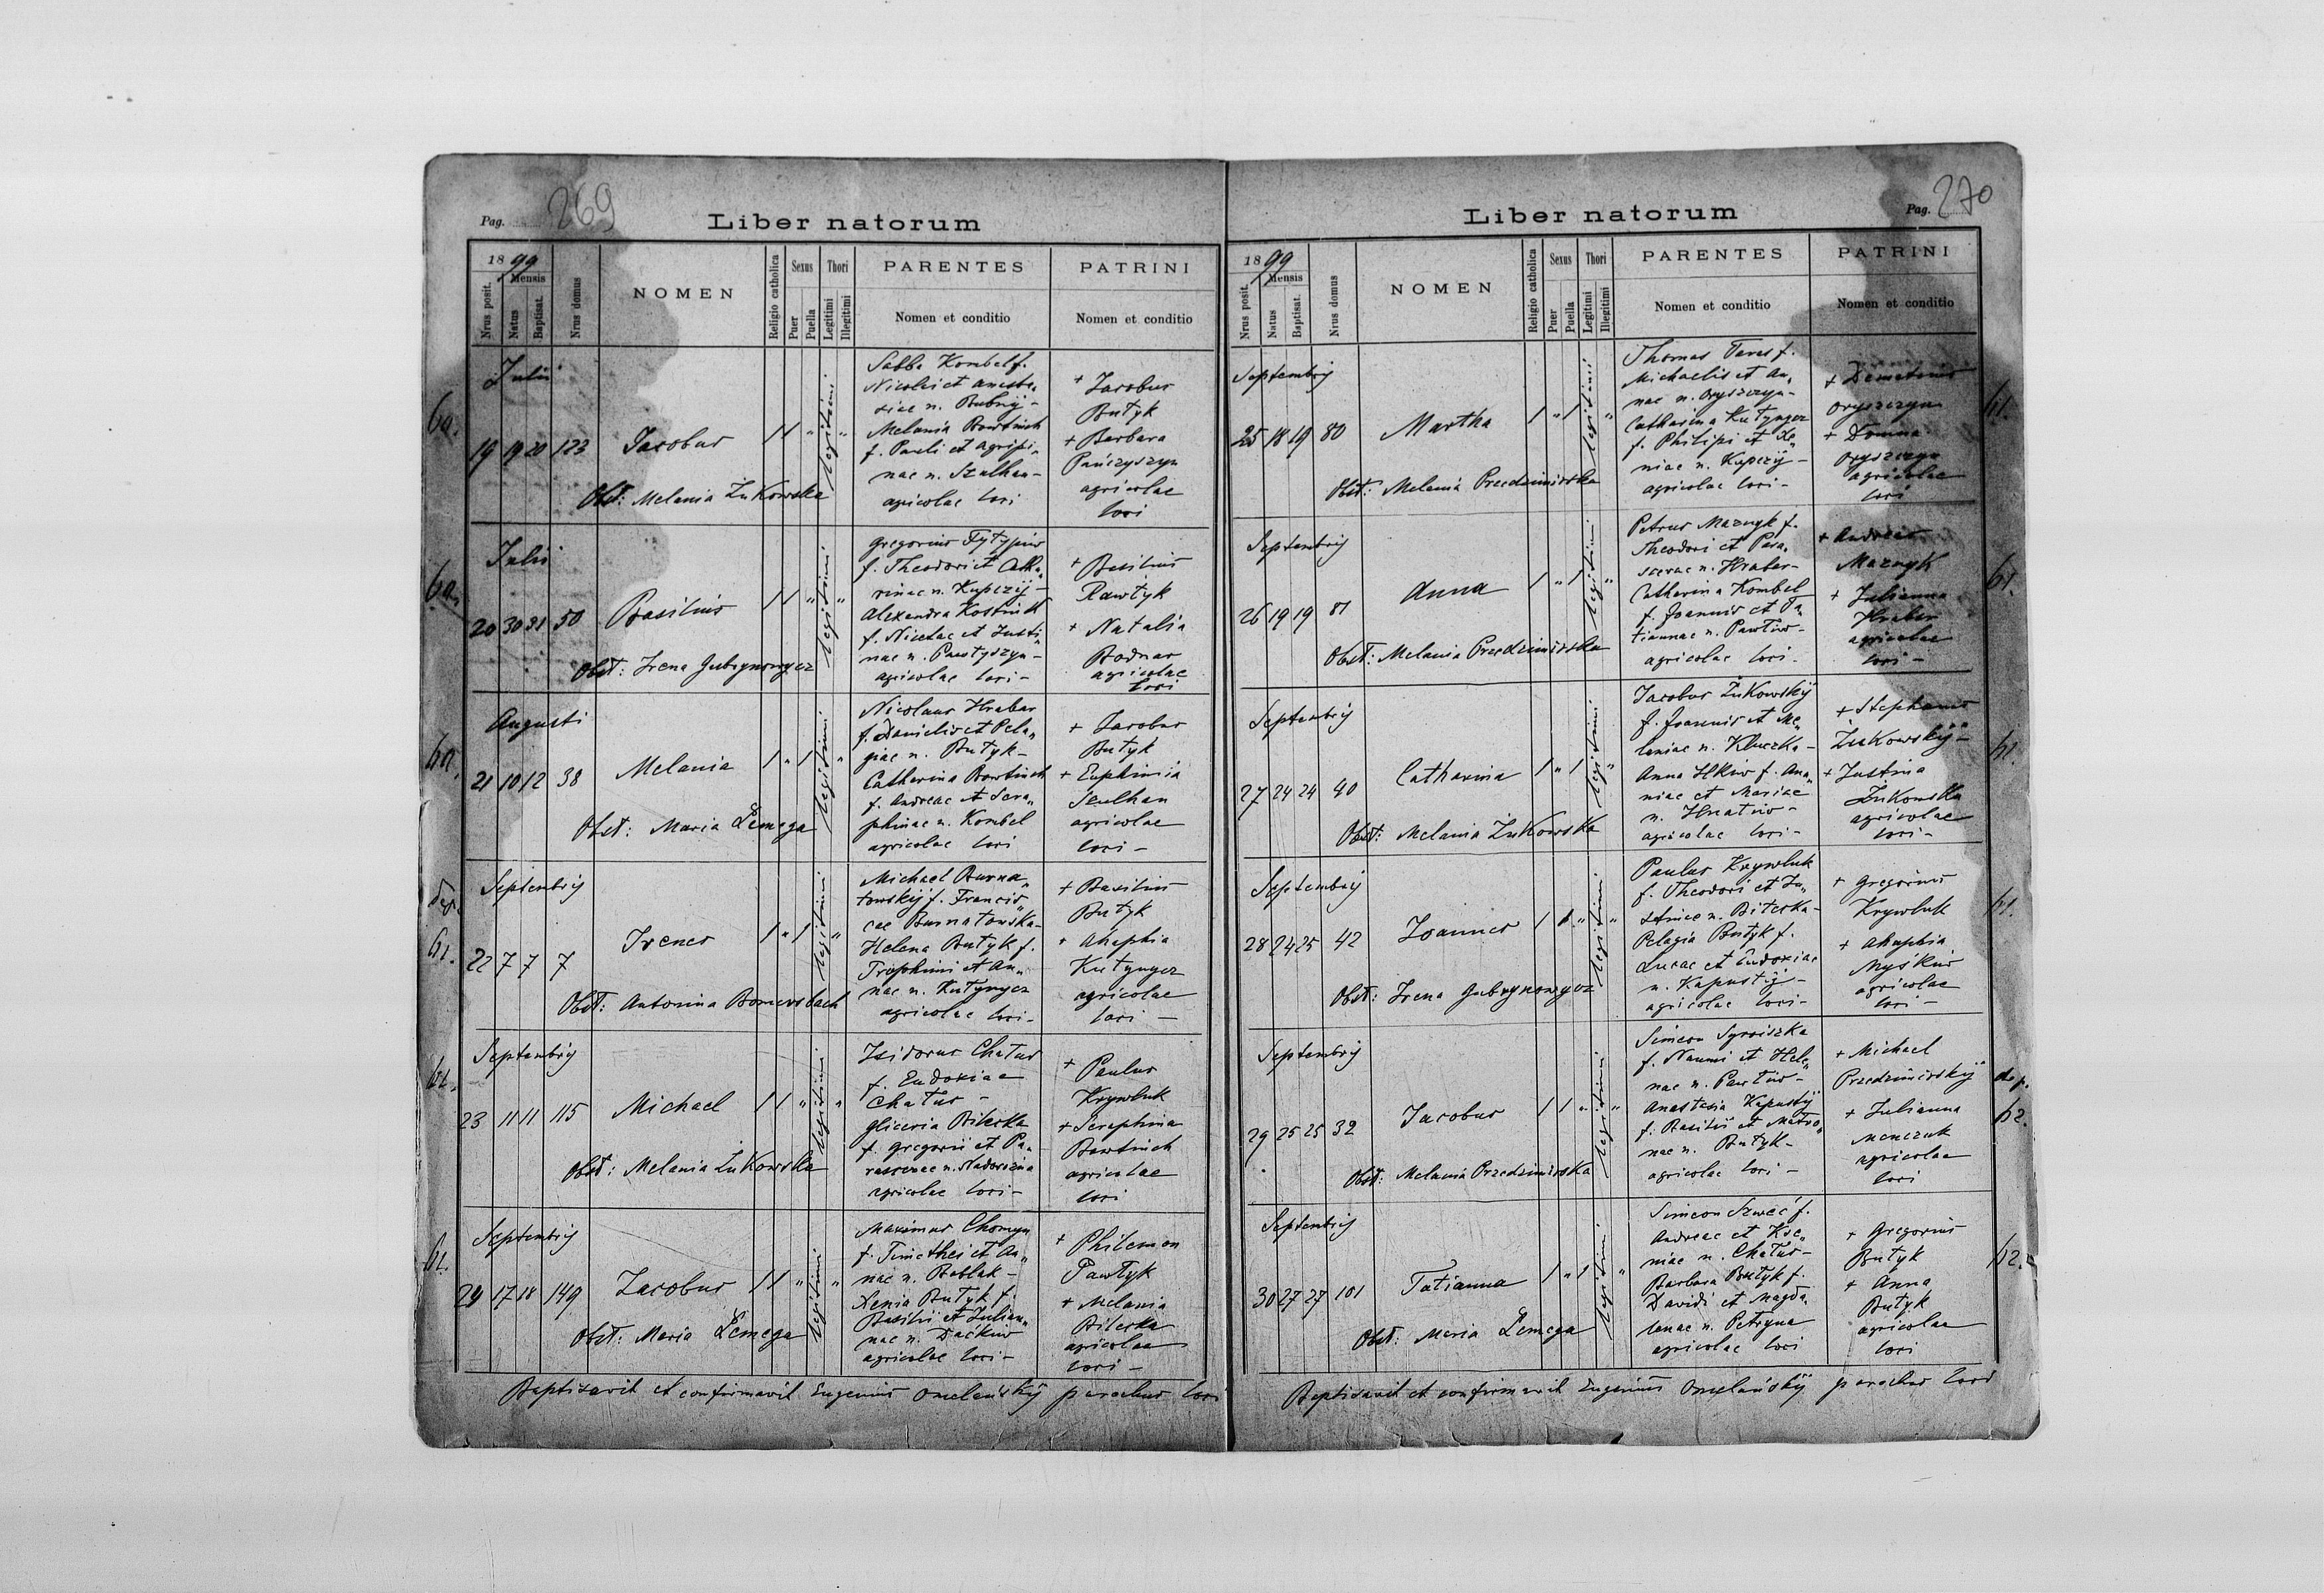 Pag. 269
Liber natorum
1899
Mensis
Nrus posit.
Natus
Baptisat.
Nrus domus
NOMEN
Religio catholica
Sexus
Puer
Puella
Thori
Legitimi
Illegitimi
PARENTES
Nomen et conditio
PATRINI
Nomen et conditio
Julii
19 19 20 123 Jacobus 1 1 " legitimi "
Obst: Melania Żukowska
Sabba Kombel f.
Nicolai et Anasta„
siae n. Bubnij -
Melania Bowtinch
f. Pauli et Agripi„
nae n. Szulhan -
agricolae loci
+ Jacobus
Butyk
+ Barbara
Pańczyszyn
agricolae
loci
Julii
20 30 31 50 Basilius 1 1 " legitimi "
Obst: Irena Gubrynowycz
Gregorius Fytypiw
f. Theodori et Catha„
rinae n. Kupczij -
Alexandra
f. Nicolae et Justi„
nae n. -
agricolae loci -
+ Basilius
Rawtyk
+ Natalia
Bodnar
agricolae
loci
Augusti
21 10 12 38 Melania 1 " 1 legitimi "
Obst: Maria Lemega
Nicolaus Hrabar
f. Danielis et Pela„
giae n. Butyk -
Catharina Bowtinch
f. Andreae et Sera„
phinae n. Kombel
agricolae loci
+ Jacobus
Butyk
+ Euphimia
Szulhan
agricolae
loci -
Septembrij
22 7 7 7 Irenes 1 " 1 legitimi "
Obst: Antonina Bomersbach
Michael Burna„
towskij f. Francis„
cae Burnatowska -
Helena Butyk f.
Trophimi et An„
nae n. Kutynycz
agricolae loci -
+ Basilius
Butyk
+ Ahaphia
Kutynycz
agricolae
loci -
Septembrij
23 11 11 115 Michael 1 1 " legitimi "
Obst: Melania Żukowska
Isidorus Chatus
f. Eudoxiae
Chatus -
Gliceria Bilecka
f. Gregorii et Pa„
rascevae n.
agricolae loci -
+ Paulus
Krywluk
+ Seraphina
Bowtinch
agricolae
loci
Septembrij
24 17 18 149 Jacobus 1 1 " legitimi "
Obst: Maria Lemega
Maximus Chomyn
f. Timothei et An„
nae n. Bablak -
Xenia Butyk f.
Basilii et Julian„
nae n. Daćkiw
agricolae loci -
+ Philemon
Pawtyk
+ Melania
Bilecka
agricolae
loci -
Baptisavit et confirmavit Eugenius Omelańskij parochus loci
Pag. 270
Liber natorum
1899
Mensis
Nrus posit.
Natus
Baptisat.
Nrus domus
NOMEN
Religio catholica
Sexus
Puer
Puella
Thori
Legitimi
Illegitimi
PARENTES
Nomen et conditio
PATRINI
Nomen et conditio
Septembrij
25 18 19 80 Martha 1 " 1 legitimi "
Obst: Melania Przedzimirska
Thomas Taras f.
Michaelis et An„
nae n. Oryszczyn -
Catharina Kutynycz
f. Philipi et Xe„
niae n. Kupczij -
agricolae loci -
+ Demetrius
Oryszczyn
+ Domna
Oryszczyn
agricolae
loci
Septembrij
26 19 19 81 Anna 1 " 1 legitimi "
Obst: Melania Przedzimirska
Petrus Maznyk f.
Theodori et Para„
scevae n. Hrabar -
Catharina Kombel
f. Joannis et Ta„
tiannae n. Pawtiw -
agricolae loci -
+ Andreas
Maznyk
+ Julianna
Hrabar
agricolae
loci -
Septembrij
27 24 24 40 Catharina 1 " 1 legitimi "
Obst: Melania Żukowska
Jacobus Żukowskij
f. Joannis et Me„
laniae n. Kluczka -
Anna Ilkiw f. Ana„
niae et Mariae
n. Hnatiw -
agricolae loci -
+ Stephanus
Żukowskij -
+ Justina
Żukowska
agricolae
loci -
Septembrij
28 24 25 42 Joannes 1 1 " legitimi "
Obst: Irena Gubrynowycz
Paulus Krywluk
f. Theodori et Ju„
stinae n. Bilecka -
Pelagia Butyk f.
Lucae et Eudoxiae
n. Kapustij -
agricolae loci -
+ Gregorius
Krywluk
+ Ahaphia
Myśkiw
agricolae
loci -
Septembrij
29 25 25 32 Jacobus 1 1 " legitimi "
Obst: Melania Przedzimirska
Simeon Syroiszka
f. Naumi et Hele„
nae n. Pawtiw -
Anastasia Kapustij
f. Basilii et Matro„
nae n. Butyk -
agricolae loci -
+ Michael
Przedzimirskij
+ Julianna
Menczuk
agricolae
loci
Septembrij
30 27 27 101 Tatianna 1 " 1 legitimi "
Obst: Maria Lemega
Simeon Szweć f.
Andreae et Kse„
niae n. Chatus -
Barbara Butyk f.
Davidi et Magda„
lenae n. Petryna
agricolae loci
+ Gregorius
Butyk
+ Anna
Butyk
agricolae
loci
Baptisavit et confirmavit Eugenius Omelańskij parochus loci